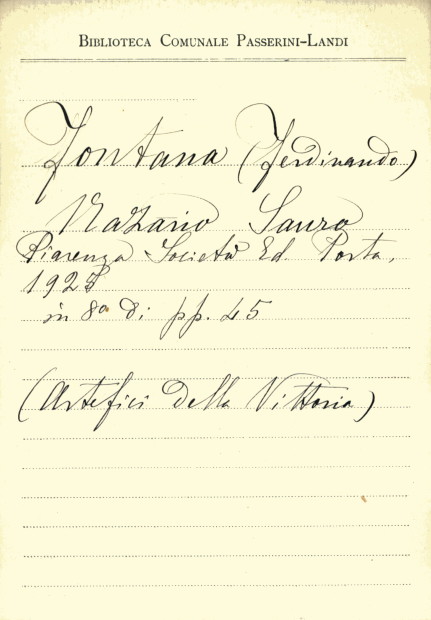 BIBLIOTECA COMUNALE PASSERINI-LANDI
Fontana (Ferdinando)
Nazario Sauro
Piacenza Società Ed. Porta,
1925
in 8° di pp. 45
(Artefici della Vittoria)